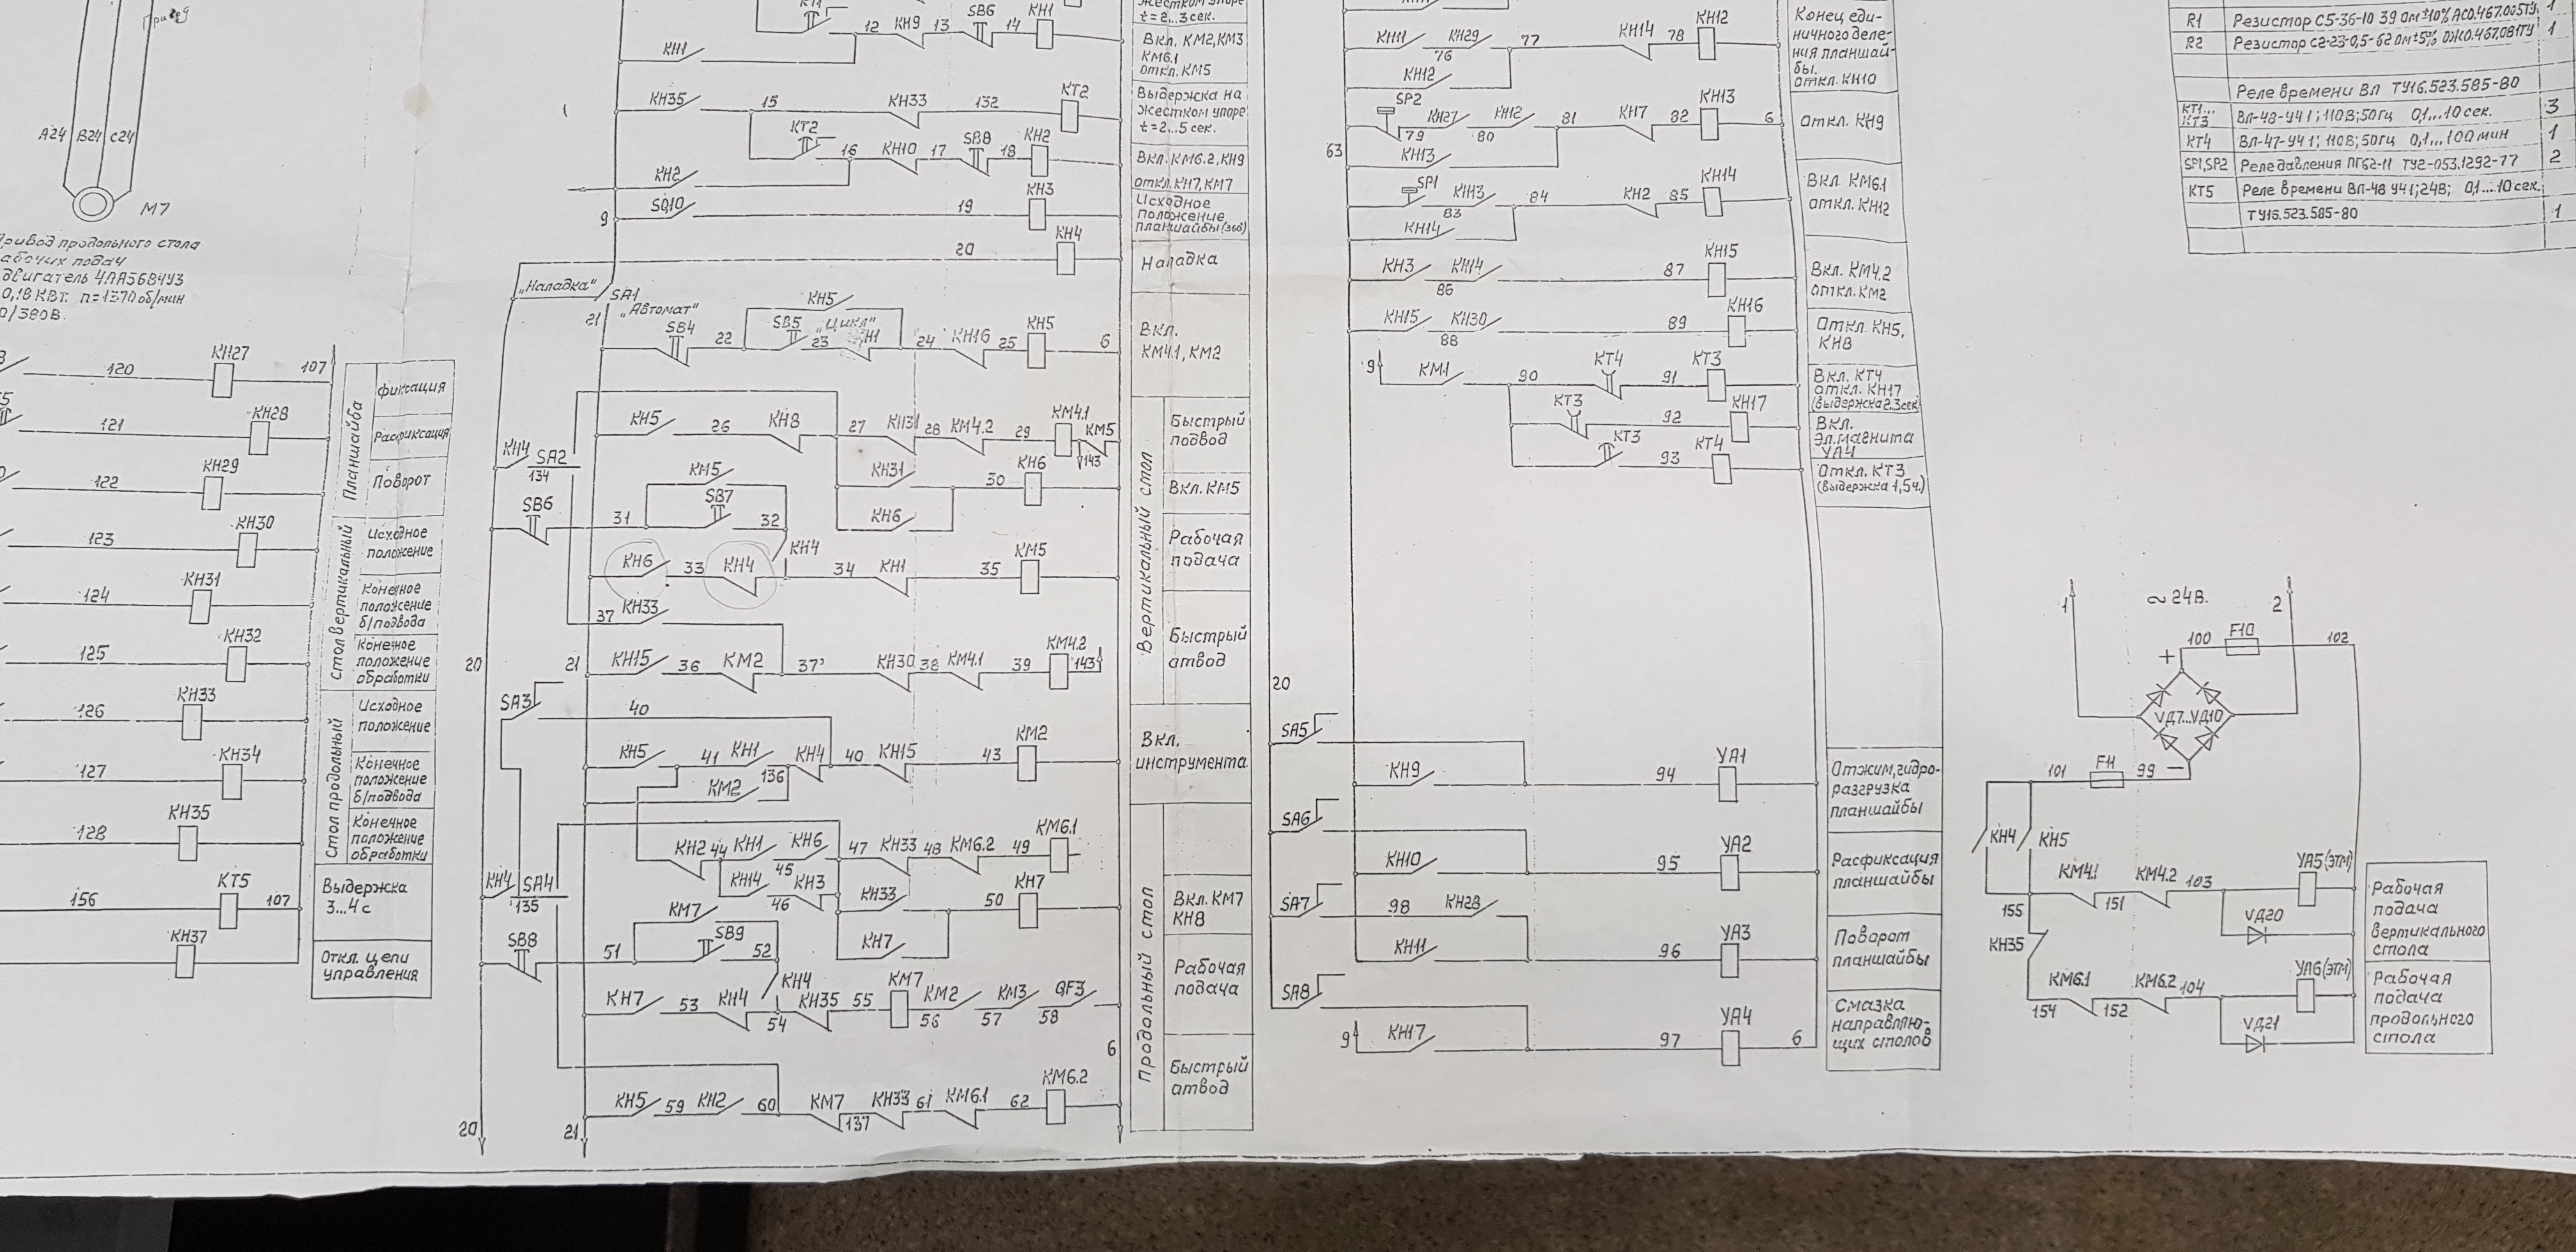 А24 В24 С24
М7
Привод продольного стола
рабочих подач
двигатель 4АА56В4У3
0,18 КВт. n=1370 об/мин
/380В.
120 КН27 107
121 КН28
122 КН29
123 КН30
124 КН31
125 КН32
126 КН33
127 КН34
128 КН35
156 КТ5 107
КН37
Планшайба
фиксация
Расфиксация
Поворот
Стол вертикальный
Исходное
положение
Конечное
положение
б/подвода
Конечное
положение
обработки
Стол продольный
Исходное
положение
Конечное
положение
б/подвода
Конечное
положение
обработки
Выдержка
3...4с
Откл. цепи
управления
12 КН9 13 SB6 14 КН1
КН1
КН35 15 КН33 132 КТ2
КТ2 16 КН10 17 SB8 18 КН2
КН2
9 SQ10 19 КН3
20 КН4
„Наладка" SA1
21 „Автомат"
КН5
SB4 22 SB5 „Цикл" 23 КН1 24 КН16 25 КН5 6
КН5 26 КН8 27 КН31 28 КМ4.2 29 КМ4.1 КМ5
143
КН4 SA2
134
КМ5 КН31 30 КН6
SB6 31 SB7 32 КН6
КН4
КН6 33 КН4 34 КН1 35 КМ5
37 КН33
20 21 КН15 36 КМ2 37' КН30 38 КМ4.1 39 КМ4.2 143
SA3 40
КН5 41 КН1 136 КН4 40 КН15 43 КМ2
КМ2
КН2 44 КН1 45 КН6 47 КН33 48 КМ6.2 49 КМ6.1
КН14 46 КН3
КН4 SA4
135
КМ7 КН33 50 КН7
SB8 51 SB9 52 КН7
КН4
КН7 53 КН4 54 КН35 55 КМ7 КМ2 56 КМ3 57 QF3 58
6
КН5 59 КН2 60 КМ7 137 КН33 61 КМ6.1 62 КМ6.2
20 21
жестком упоре
t=2...3сек.
Вкл. КМ2,КМ3
КМ6.1
откл. КМ5
Выдержка на
жестком упоре
t=2...5 сек.
Вкл. КМ6.2, КН9
откл. КН7, КМ7
Исходное
положение
планшайбы(360)
Наладка
Вкл.
КМ4.1, КМ2
Вертикальный стол
Быстрый
подвод
Вкл. КМ5
Рабочая
подача
Быстрый
отвод
Вкл.
инструмента
Продольный стол
Вкл. КМ7
КН8
Рабочая
подача
Быстрый
отвод
КН11 КН29 76 77 КН14 78 КН12
КН12
SP2 79 КН27 80 КН12 81 КН7 82 КН13 6
63 КН13
SP1 КН13 83 84 КН2 85 КН14
КН14
КН3 КН14 86 87 КН15
КН15 КН30 88 89 КН16
9 КМ1 90 КТ4 91 КТ3
КТ3 92 КН17
КТ3 93 КТ4
20
SA5
КН9 94 УА1
SA6
КН10 95 УА2
SA7 98 КН28
КН11 96 УА3
SA8
9 КН17 97 УА4 6
Конец еди-
ничного деле-
ния планшай-
бы.
откл. КН10
Откл. КН9
Вкл. КМ6.1
откл. КН12
Вкл. КМ4.2
откл. КМ2
Откл. КН5,
КН8
Вкл. КТ4
откл. КН17
(выдержка 2..3сек
Вкл.
эл.магнита
УА4
Откл. КТ3
(выдержка 1,5ч.)
Отжим,гидро-
разгрузка
планшайбы
Расфиксация
планшайбы
Поворот
планшайбы
Смазка
направляю-
щих столов
R1 Резистор С5-36-10 39 Ом±10% АС0.467.005ТУ. 1
R2 Резистор С2-23-0,5-62 Ом±5% ОЖ0.467.081ТУ 1
Реле времени Вл ТУ16.523.585-80
КТ1...
КТ3 Вл-48-У41; 110В; 50Гц 0,1...10 сек. 3
КТ4 Вл-47-У41; 110В; 50Гц 0,1...100 мин 1
SP1,SP2 Реле давления ПГ62-11 ТУ2-053.1292-77 2
КТ5 Реле времени ВЛ-48 У41; 24В; 0,1...10 сек.
ТУ16.523.585-80 1
1 ~24В. 2
100 F10 102
+
VД7...VД10
101 F11 99 −
КН4 КН5
155 КМ4.1 151 КМ4.2 103 УА5(ЭТМ)
VД20
КН35
154 КМ6.1 152 КМ6.2 104 УА6(ЭТМ)
VД21
Рабочая
подача
вертикального
стола
Рабочая
подача
продольного
стола